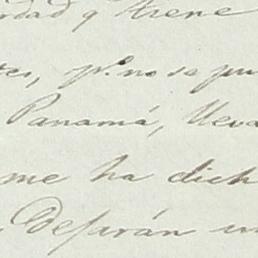 rdad q Irene
tes, pr. no se pu
Panamá, lleva
me ha dich
Dejarán un